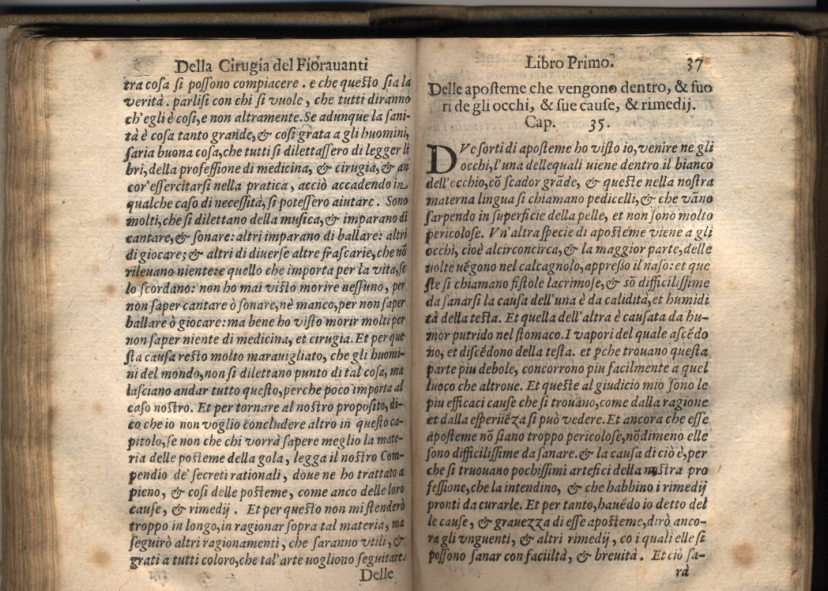 Della Cirugia del Fiorauanti
tra cosa si possono compiacere. e che questo sia la
verità. parlisi con chi si vuole, che tutti diranno
ch'egli è così, e non altramente. Se adunque la sani-
tà è cosa tanto grande, & così grata a gli huomini,
saria buona cosa, che tutti si dilettassero di legger li
bri, della professione di medicina, & cirugia, & an
cor'essercitarsi nella pratica, acciò accadendo in
qualche caso di necessità, si potessero aiutare. Sono
molti, che si dilettano della musica, & imparano di
cantare, & sonare: altri imparano di ballare: altri
di giocare; & altri di diuerse altre frascarie, che nõ
rileuano niente: e quello che importa per la vita, se
lo scordano: non ho mai visto morire nessuno, per
non saper cantare ò sonare, nè manco, per non saper
ballare ò giocare: ma bene ho visto morir molti per
non saper niente di medicina, et cirugia. Et per que
sta causa resto molto marauigliato, che gli huomi-
ni del mondo, non si dilettano punto di tal cosa, ma
lasciano andar tutto questo, perche poco importa al
caso nostro. Et per tornare al nostro proposito, di-
co che io non voglio concludere altro in questo ca-
pitolo, se non che chi vorrà sapere meglio la mate-
ria delle posteme della gola, legga il nostro Com-
pendio de' secreti rationali, doue ne ho trattato a
pieno, & così delle posteme, come anco delle loro
cause, & rimedij. Et per questo non mi stenderò
troppo in longo, in ragionar sopra tal materia, ma
seguirò altri ragionamenti, che saranno vtili, &
grati a tutti coloro, che tal'arte uogliono seguitare.
Delle
Libro Primo. 37
Delle aposteme che vengono dentro, & fuo
ri de gli occhi, & sue cause, & rimedij.
Cap. 35.
DVe sorti di aposteme ho visto io, venire ne gli
occhi, l'una delle quali uiene dentro il bianco
dell'occhio, cõ scador grãde, & queste nella nostra
materna lingua si chiamano pedicelli, & che vãno
sarpendo in superficie della pelle, et non sono molto
pericolose. Vn'altra specie di aposteme viene a gli
occhi, cioè al circoncirca, & la maggior parte, delle
uolte uẽgono nel calcagnolo, appresso il naso: et que
ste si chiamano fistole lacrimose, & sõ difficilissime
da sanarsi la causa dell'una è da calidità, et humidi
tà della testa. Et quella dell'altra è causata da hu-
mor putrido nel stomaco. I vapori del quale ascẽdo
no, et discẽdono della testa. et pche trouano questa
parte piu debole, concorrono piu facilmente a quel
luoco che altroue. Et queste al giudicio mio sono le
piu efficaci cause che si trouano, come dalla ragione
et dalla esperiiẽza si può vedere. Et ancora che esse
aposteme nõ siano troppo pericolose, nõdimeno elle
sono difficilissime da sanare. & la causa di ciò è, per
che si truouano pochissimi artefici della nostra pro
fessione, che la intendino, & che habbino i rimedij
pronti da curarle. Et per tanto, hauẽdo io detto del
le cause, & grauezza di esse aposteme, dirò anco-
ra gli vnguenti, & altri rimedij, co i quali elle si
possono sanar con faciiltà, & breuità. Et ciò sa-
rà